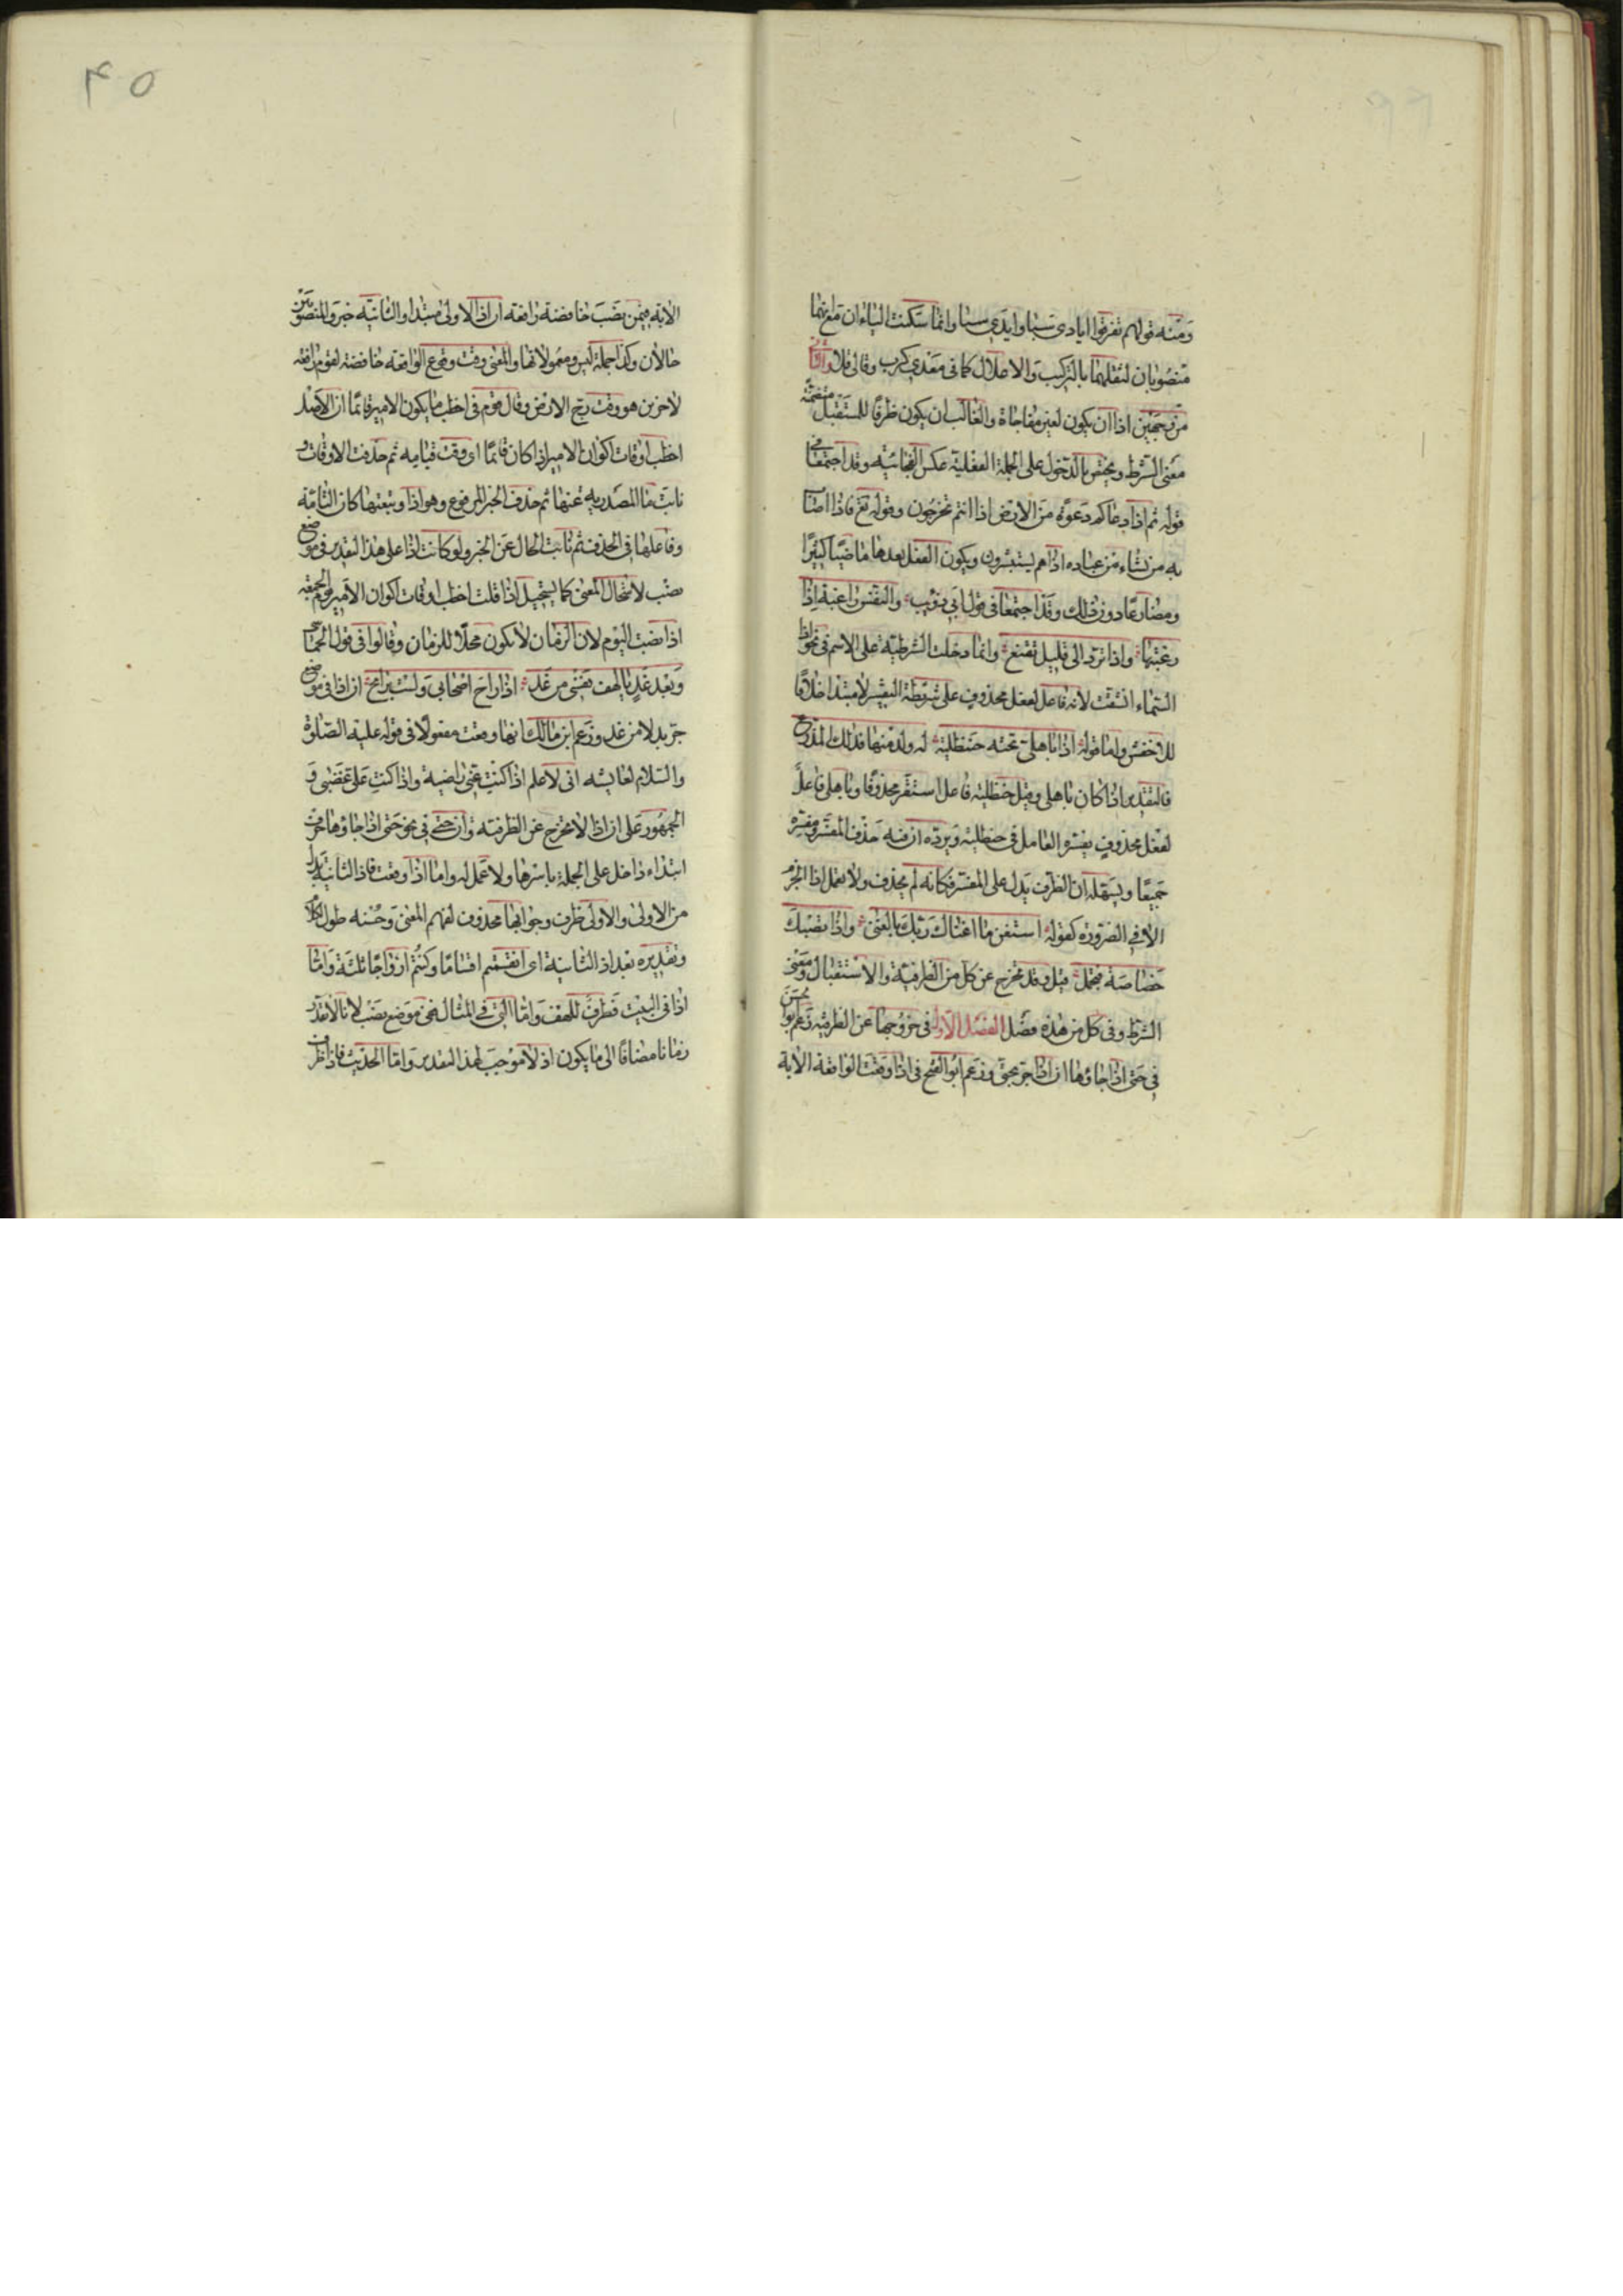 ومنه قولهم تفرقوا ايادى سبا وايدى سبا وانما سكنت الياءان مع انهما
منصوبان لثقلهما بالتركيب والاعلال كما فى معدى كرب وقالى قلا والثانى
من وجهين اذا ان يكون لغير مفاجاة والغالب ان يكون ظرفا للمستقبل متضمنة
معنى الشرط ويختص بالدخول على الجملة الفعلية عكس الفجائية وقد اجتمعا فى
قوله ثم اذا دعاكم دعوة من الارض اذا انتم تخرجون وقوله تع فاذا اصاب
به من يشاء من عباده اذا هم يستبشرون ويكون الفعل بعدها ماضيا كثيرا
ومضارعا دون ذلك وقد اجتمعا فى قول ابى ذويب والنفس راغبة اذا
رغبتها واذا ترد الى قليل تقنع وانما دخلت الشرطية على الاسم فى نحو اذا
السماء انشقت لانه فاعل لفعل محذوف على شريطة التفسير لا مبتدا خلافا
للاخفش واما قوله اذا باهلى تحته حنظلية له ولد منها فذلك المذرع
فالتقدير اذا كان باهلى وقيل حنظلية فاعل استقر محذوفا وباهلى فاعل
لفعل محذوف يفسره العامل فى حنظلية ويرده ان فيه حذف المفسر ومفسره
جميعا ويسهله ان الظرف يدل على المفسر فكانه لم يحذف ولا تعمل اذا الجزم
الا فى الضرورة كقوله استغن ما اغناك ربك بالغنى واذا تصبك
خصاصة فتجمل قيل وقد تخرج عن كل من الظرفية والاستقبال ومعنى
الشرط وفى كل من هذه فصل الفصل الاول فى خروجها عن الظرفية زعم ابو الحسن
فى حتى اذا جاؤها ان اذا جر بحتى وزعم ابو الفتح فى اذا وقعت الواقعة الاية
٤٥
الاية فيمن نصب خافضة رافعة ان اذا الاولى مبتدا والثانية خبر والمنصوبين
حالان وكذا جملة ليس ومعمولاتها والمعنى وقت وقوع الواقعة خافضة لقوم رافعة
لاخرين هو وقت رج الارض وقال قوم فى اخطب ما يكون الامير قائما ان الاصل
اخطب اوقات اكوان الامير اذا كان قائما اى وقت قيامه ثم حذفت الاوقات و
نابت ما المصدرية عنها ثم حذف الخبر المرفوع وهو اذا وتبعتها كان التامة
وفاعلها فى الحذف ثم نابت الحال عن الخبر ولو كانت اذا على هذا التقدير فى موضع
نصب لاستحال المعنى كما يستحيل اذا قلت اخطب اوقات اكوان الامير يوم الجمعة
اذا نصبت اليوم لان الزمان لا يكون محلا للزمان وقالوا فى قول الحماسى
وبعد غد يا لهف نفسى من غد اذا راح اصحابى ولست برائح ان اذا فى موضع
جر بدلا من غد وزعم ابن مالك انها وقعت مفعولا فى قوله عليه الصلوة
والسلام لعايشه انى لاعلم اذا كنت عنى راضية واذا كنت على غضبى و
الجمهور على ان اذا لا تخرج عن الظرفية وان حتى فى نحو حتى اذا جاؤها حرف
ابتداء داخل على الجملة باسرها ولا عمل له واما اذا وقعت فاذا الثانية بدل
من الاولى والاولى ظرف وجوابها محذوف لفهم المعنى وحسنه طول الكلام
وتقديره بعد اذا الثانية اى انقسمتم اقساما وكنتم ازواجا ثلثة واما
اذا فى البيت فظرف للهف واما التى فى المثال ففى موضع نصب لانا لا نقدر
زمانا مضافا الى ما يكون اذ لا موجب لهذا التقدير واما الحديث فاذا ظرف